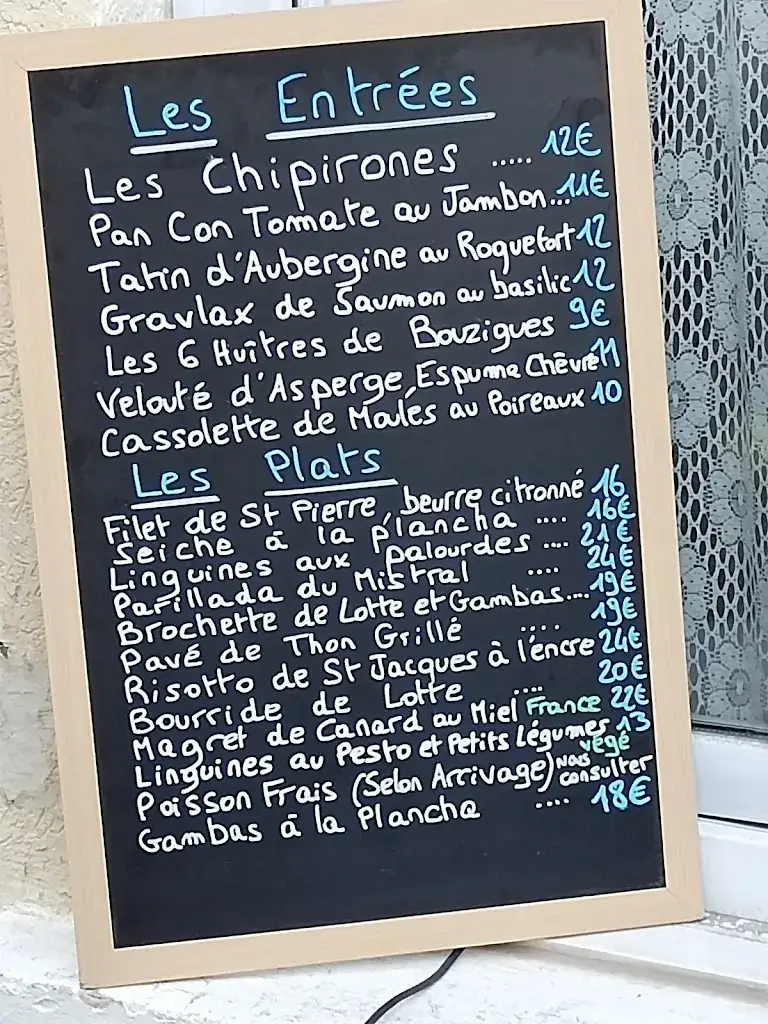 Les Entrées
Les Chipirones ..... 12€
Pan Con Tomate au Jambon... 11€
Tatin d'Aubergine au Roquefort 12
Gravlax de Saumon au basilic 12
Les 6 Huîtres de Bouzigues 9€
Velouté d'Asperge, Espuma Chèvre 11
Cassolette de Moules au Poireaux 10
Les Plats
Filet de St Pierre, beurre citronné 16
Seiche à la plancha .... 16€
Linguines aux palourdes .... 21€
Parillada du Mistral .... 24€
Brochette de Lotte et Gambas.... 19€
Pavé de Thon Grillé .... 19€
Risotto de St Jacques à l'encre 24€
Bourride de Lotte .... 20€
Magret de Canard au Miel France 22€
Linguines au Pesto et Petits Légumes 13
végé
Poisson Frais (Selon Arrivage) nous consulter
Gambas à la Plancha .... 18€